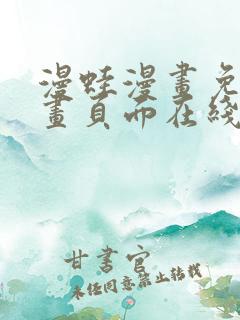 漫蛙漫畫免
畫頁面在綫
甘書官
未經同意禁止轉載